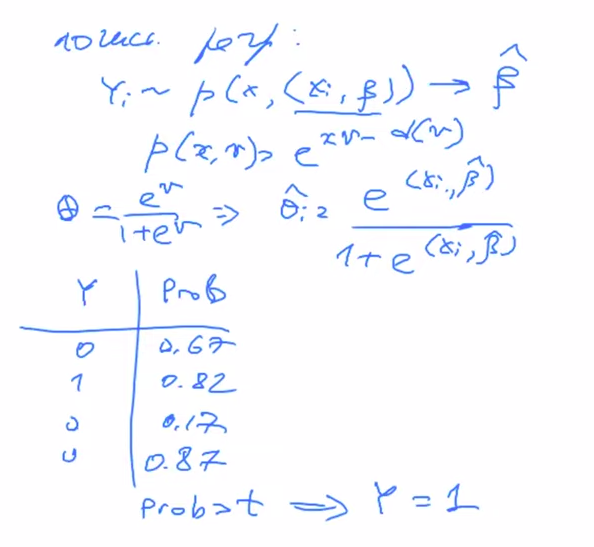 логист. регр:
Y_i ~ p(x, (x_i, β)) → β̂
p(x, v) = e^{xv - d(v)}
θ = e^v / (1+e^v) ⇒ θ̂_i = e^{(x_i, β̂)} / (1+e^{(x_i, β̂)})
Y Prob
0 0.67
1 0.82
0 0.17
0 0.87
Prob>t ⇒ Y = 1